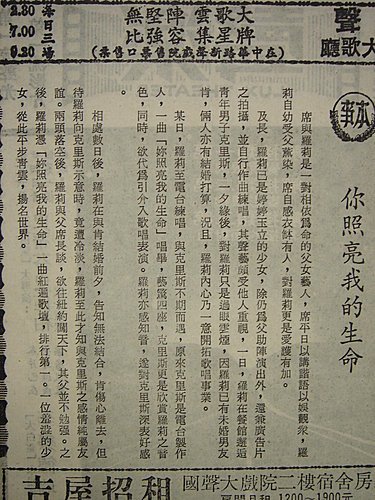 聲
大歌廳
大牌
歌星
雲集
陣容
堅強
無比
每日三場
2.30
7.00
9.20
(在中華路新聲戲院售票口售票)
本事
你照亮我的生命
席與羅莉是一對相依為命的父女藝人,席平日以講諧語以娛觀衆,羅
莉自幼受父薰染,席自感衣鉢有人,對羅莉更是愛護有加。
及長,羅莉已是婷婷玉立的少女,除仍爲父助陣演出外,還兼廣告片
之拍攝,並自行作曲練唱,其聲藝頗受他人重視,一日,羅莉在餐館邂逅
青年男子克里斯,一夕緣後,對羅莉只是過眼雲煙,因羅莉已有未婚男友
肯,倆人亦有結婚打算,況且,羅莉內心乃一意開拓歌唱事業。
某日,羅莉至電台練唱,與克里斯不期而遇,原來克里斯是電台製作
人,一曲「妳照亮我的生命」唱畢,藝驚四座,克里斯更是欣賞羅莉之音
色,同時,欲代為引介入歌唱表演。羅莉亦感知音,遂對克里斯深表好感
。
相處數日後,羅莉在與肯結婚前夕,告知無法結合,肯傷心離去,但
待羅莉向克里斯示意時,竟遭冷淡,羅莉至此才知與克里斯之感情純屬友
誼。兩頭落空後,羅莉與父席長談,欲在紐約闖天下,其父並不勉強。之
後,羅莉憑「妳照亮我的生命」一曲紅遍歌壇,排行第一。一位羞澀的少
女,從此平步青雲,揚名世界。
吉屋招租
國聲大戲院二樓宿舍房
1200~1900元